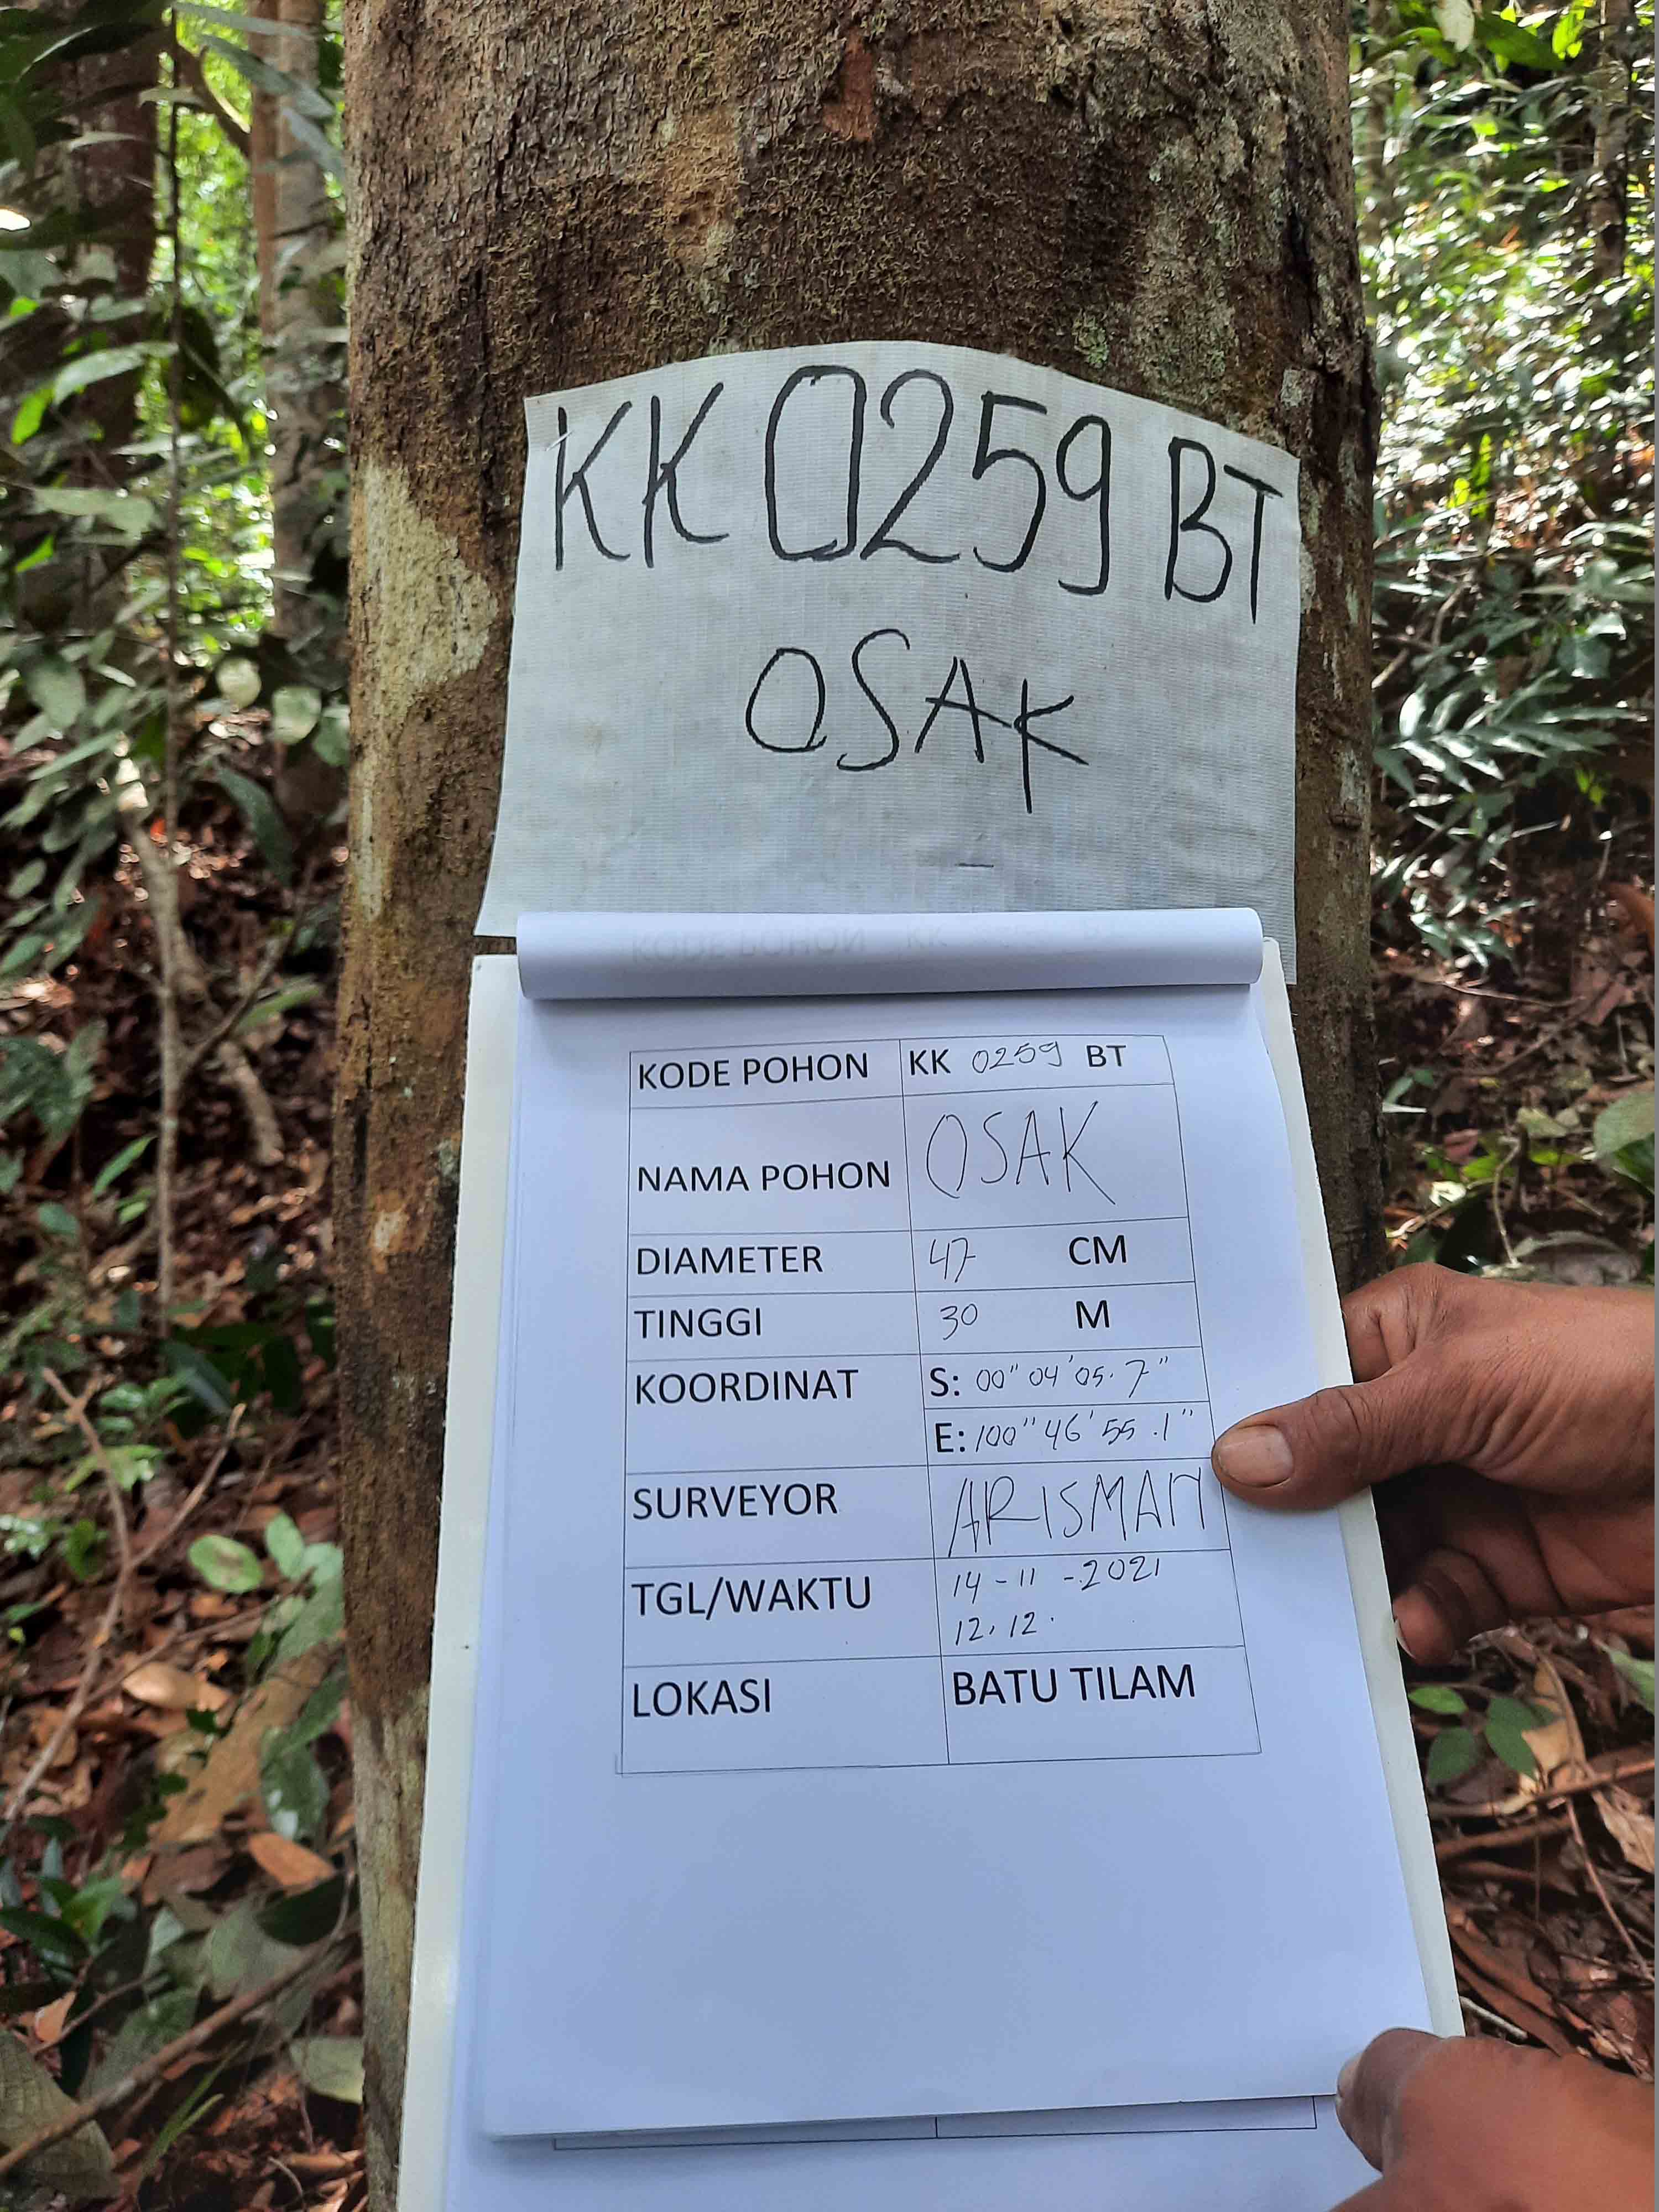 KK 0259 BT
OSAK
KODE POHON KK 0259 BT
NAMA POHON OSAK
DIAMETER 47 CM
TINGGI 30 M
KOORDINAT S: 00" 04' 05.7"
E: 100" 46' 55.1"
SURVEYOR ARISMAN
TGL/WAKTU 14-11-2021
12.12.
LOKASI BATU TILAM